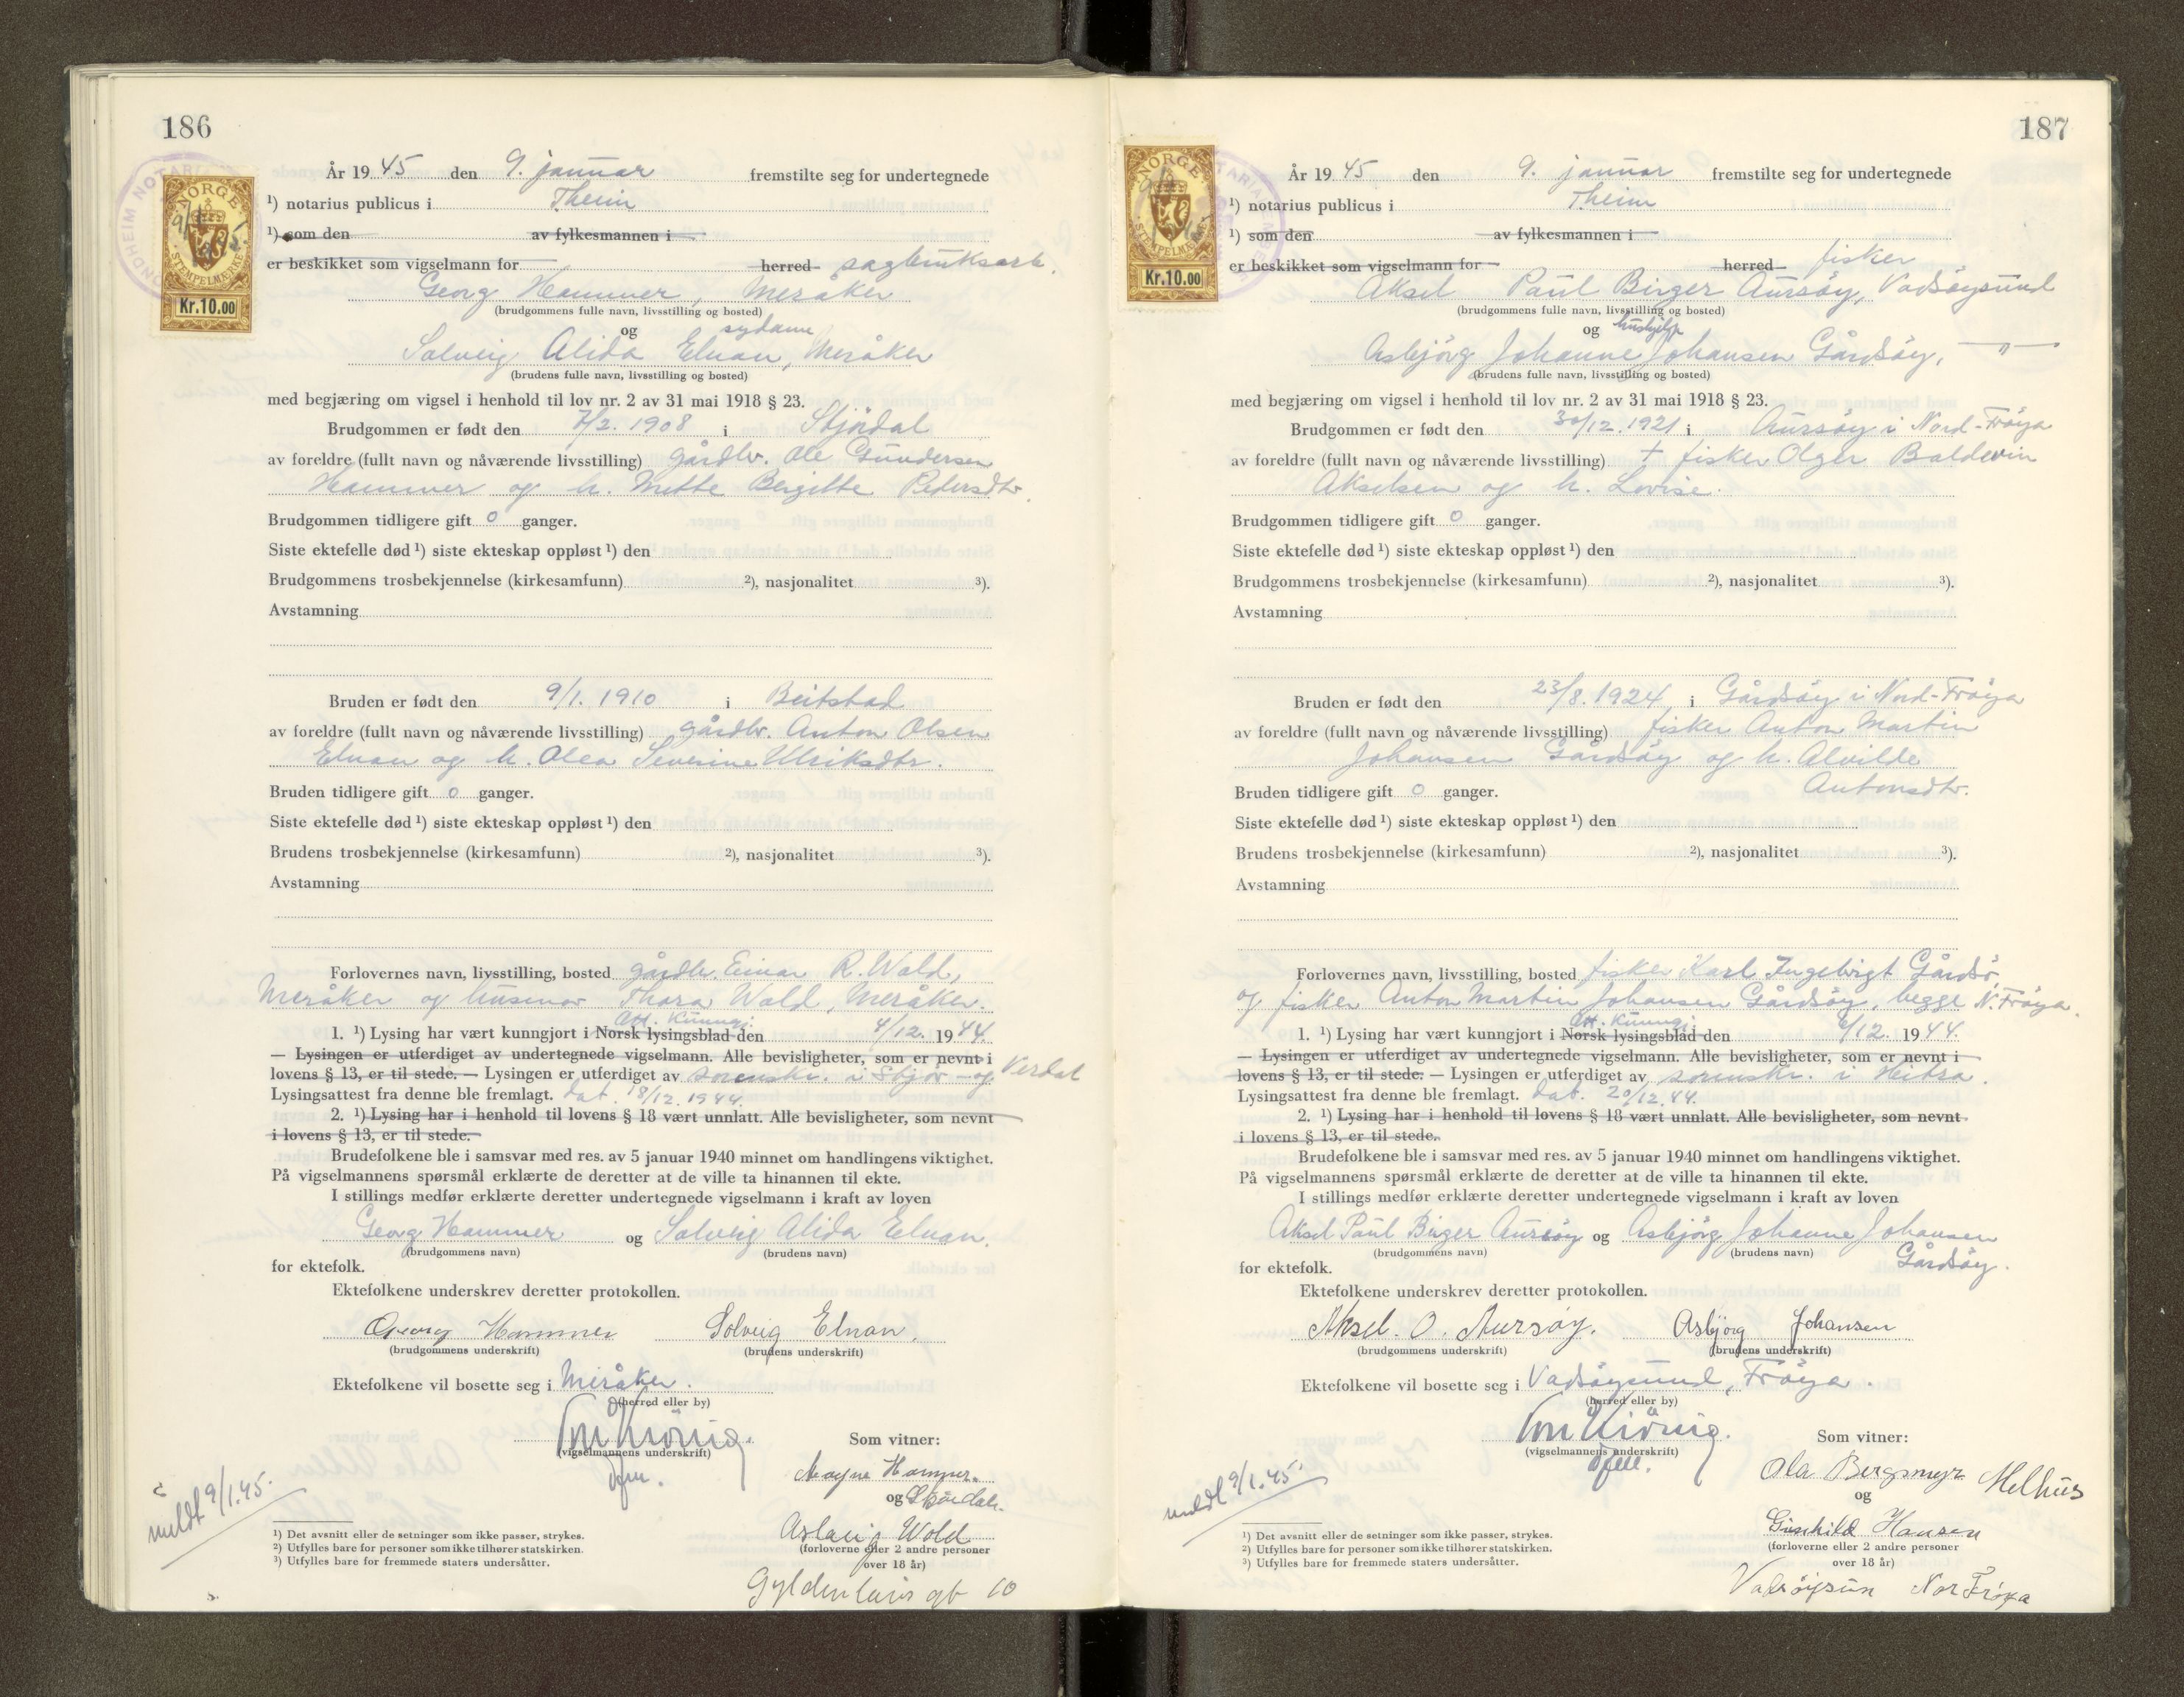 186
NORGE
STEMPELMERKE
Kr.10.00
År 1945 den 9. januar fremstilte seg for undertegnede
¹) notarius publicus i Theim
¹) som den av fylkesmannen i
er beskikket som vigselmann for herred sagbruksarb.
Georg Hammer, Meråker
(brudgommens fulle navn, livsstilling og bosted)
og sydame
Solveig Alida Elnan, Meråker
(brudens fulle navn, livsstilling og bosted)
med begjæring om vigsel i henhold til lov nr. 2 av 31 mai 1918 § 23.
Brudgommen er født den 7/2. 1908 i Stjördal
av foreldre (fullt navn og nåværende livsstilling) gårdbr. Ole Gundersen
Hammer og h. Mette Bergitte Pedersdtr.
Brudgommen tidligere gift 0 ganger.
Siste ektefelle død ¹) siste ekteskap oppløst ¹) den
Brudgommens trosbekjennelse (kirkesamfunn) ²), nasjonalitet ³).
Avstamning
Bruden er født den 9/1. 1910 i Beitstad
av foreldre (fullt navn og nåværende livsstilling) gårdbr. Anton Olsen
Elnan og h. Olea Severine Ulriksdtr.
Bruden tidligere gift 0 ganger.
Siste ektefelle død ¹) siste ekteskap oppløst ¹) den
Brudens trosbekjennelse (kirkesamfunn) ²), nasjonalitet ³).
Avstamning
Forlovernes navn, livsstilling, bosted gårdbr. Einar R. Wold,
Meråker og husmor Thora Wold, Meråker.
off. kunngj.
1. ¹) Lysing har vært kunngjort i Norsk lysingsblad den 4/12. 1944.
— Lysingen er utferdiget av undertegnede vigselmann. Alle bevisligheter, som er nevnt i
lovens § 13, er til stede. — Lysingen er utferdiget av sorenskr. i Stjör- og Verdal
Lysingsattest fra denne ble fremlagt. dat. 18/12. 1944.
2. ¹) Lysing har i henhold til lovens § 18 vært unnlatt. Alle bevisligheter, som nevnt
i lovens § 13, er til stede.
Brudefolkene ble i samsvar med res. av 5 januar 1940 minnet om handlingens viktighet.
På vigselmannens spørsmål erklærte de deretter at de ville ta hinannen til ekte.
I stillings medfør erklærte deretter undertegnede vigselmann i kraft av loven
Georg Hammer og Solveig Alida Elnan.
(brudgommens navn) (brudens navn)
for ektefolk.
Ektefolkene underskrev deretter protokollen.
Georg Hammer Solveig Elnan.
(brudgommens underskrift) (brudens underskrift)
Ektefolkene vil bosette seg i Meråker.
(herred eller by)
Som vitner:
(vigselmannens underskrift)
dfm.
Magne Hammer.
og Stjørdal.
Aslaug Wold
(forloverne eller 2 andre personer
over 18 år)
Gyldenløvs gt 10
meldt 9/1.45.
¹) Det avsnitt eller de setninger som ikke passer, strykes.
²) Utfylles bare for personer som ikke tilhører statskirken.
³) Utfylles bare for fremmede staters undersåtter.
187
NORGE
STEMPELMERKE
Kr.10.00
År 1945 den 9. januar fremstilte seg for undertegnede
¹) notarius publicus i Theim
¹) som den av fylkesmannen i
er beskikket som vigselmann for herred fisker
Aksel Paul Birger Aursöy, Vadsöysund
(brudgommens fulle navn, livsstilling og bosted)
og hushjelp
Asbjörg Johanne Johansen Gårdsöy, —"—
(brudens fulle navn, livsstilling og bosted)
med begjæring om vigsel i henhold til lov nr. 2 av 31 mai 1918 § 23.
Brudgommen er født den 30/12. 1921 i Aursöy i Nord-Fröya
av foreldre (fullt navn og nåværende livsstilling) † fisker Olger Baldevin
Akselsen og h. Lovise.
Brudgommen tidligere gift 0 ganger.
Siste ektefelle død ¹) siste ekteskap oppløst ¹) den
Brudgommens trosbekjennelse (kirkesamfunn) ²), nasjonalitet ³).
Avstamning
Bruden er født den 23/8. 1924 i Gårdsöy i Nord-Fröya
av foreldre (fullt navn og nåværende livsstilling) fisker Anton Martin
Johansen Gårdsöy og h. Alvilde
Antonsdtr.
Bruden tidligere gift 0 ganger.
Siste ektefelle død ¹) siste ekteskap oppløst ¹) den
Brudens trosbekjennelse (kirkesamfunn) ²), nasjonalitet ³).
Avstamning
Forlovernes navn, livsstilling, bosted fisker Karl Ingebrigt Gårdsö,
og fisker Anton Martin Johansen Gårdsöy, begge N. Fröya.
off. kunngj.
1. ¹) Lysing har vært kunngjort i Norsk lysingsblad den 6/12. 1944.
— Lysingen er utferdiget av undertegnede vigselmann. Alle bevisligheter, som er nevnt i
lovens § 13, er til stede. — Lysingen er utferdiget av sorenskr. i Hitra.
Lysingsattest fra denne ble fremlagt. dat. 20/12.44.
2. ¹) Lysing har i henhold til lovens § 18 vært unnlatt. Alle bevisligheter, som nevnt
i lovens § 13, er til stede.
Brudefolkene ble i samsvar med res. av 5 januar 1940 minnet om handlingens viktighet.
På vigselmannens spørsmål erklærte de deretter at de ville ta hinannen til ekte.
I stillings medfør erklærte deretter undertegnede vigselmann i kraft av loven
Aksel Paul Birger Aursöy og Asbjörg Johanne Johansen
(brudgommens navn) (brudens navn) Gårdsöy.
for ektefolk.
Ektefolkene underskrev deretter protokollen.
Aksel. O. Aursøy. Asbjørg Johansen
(brudgommens underskrift) (brudens underskrift)
Ektefolkene vil bosette seg i Vadsöysund, Fröya.
(herred eller by)
Som vitner:
(vigselmannens underskrift)
dfm.
Ola Bergsmyr Melhus
og
Gunhild Hansen
(forloverne eller 2 andre personer
over 18 år)
Vadsöysun Nor Frøya
meldt 9/1.45.
¹) Det avsnitt eller de setninger som ikke passer, strykes.
²) Utfylles bare for personer som ikke tilhører statskirken.
³) Utfylles bare for fremmede staters undersåtter.